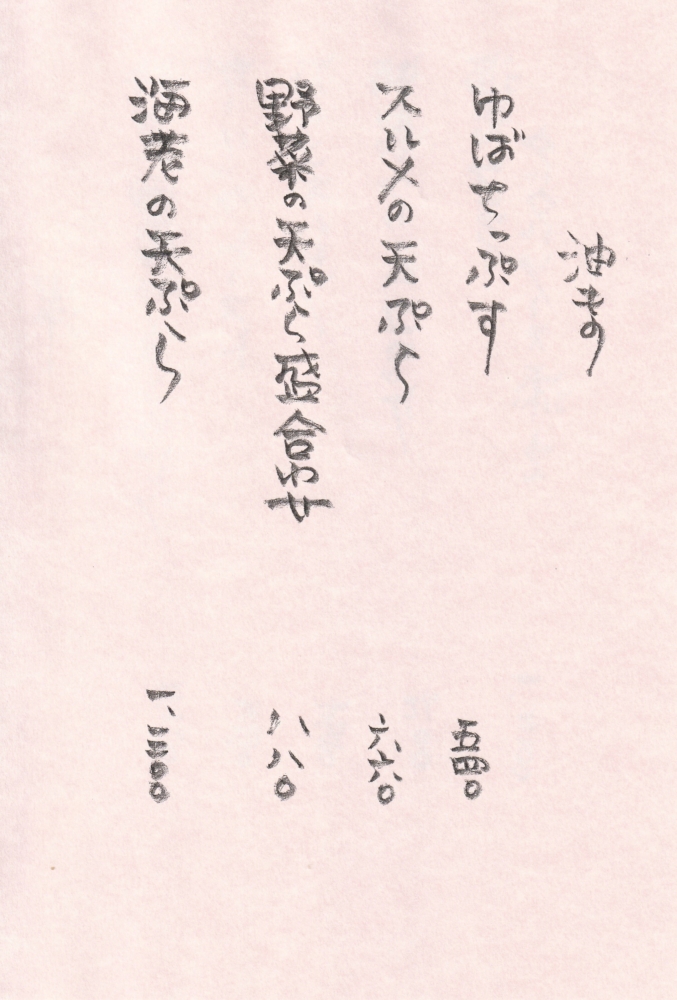 油もの
ゆばちっぷす 五四〇
スルメの天ぷら 六六〇
野菜の天ぷら盛合わせ 八八〇
海老の天ぷら 一、三〇〇